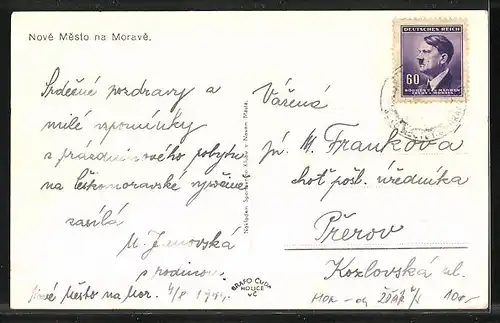 Nové Město na Moravě.
Srdečné pozdravy a
milé vzpomínky
z prázdninového pobytu
na Českomoravské vysočině
zasílá
M. Janovská
s rodinou.
Nové Město na Mor. 4/8 1944.
Nákladem
v Novém Městě.
GRAFO ČUDA
HOLICE
V Č
DEUTSCHES REICH
60
BÖHMEN U. MÄHREN
ČECHY A MORAVA
Vážená
pí. M. Franková
choť pošt. úředníka
Přerov
Kozlovská ul.